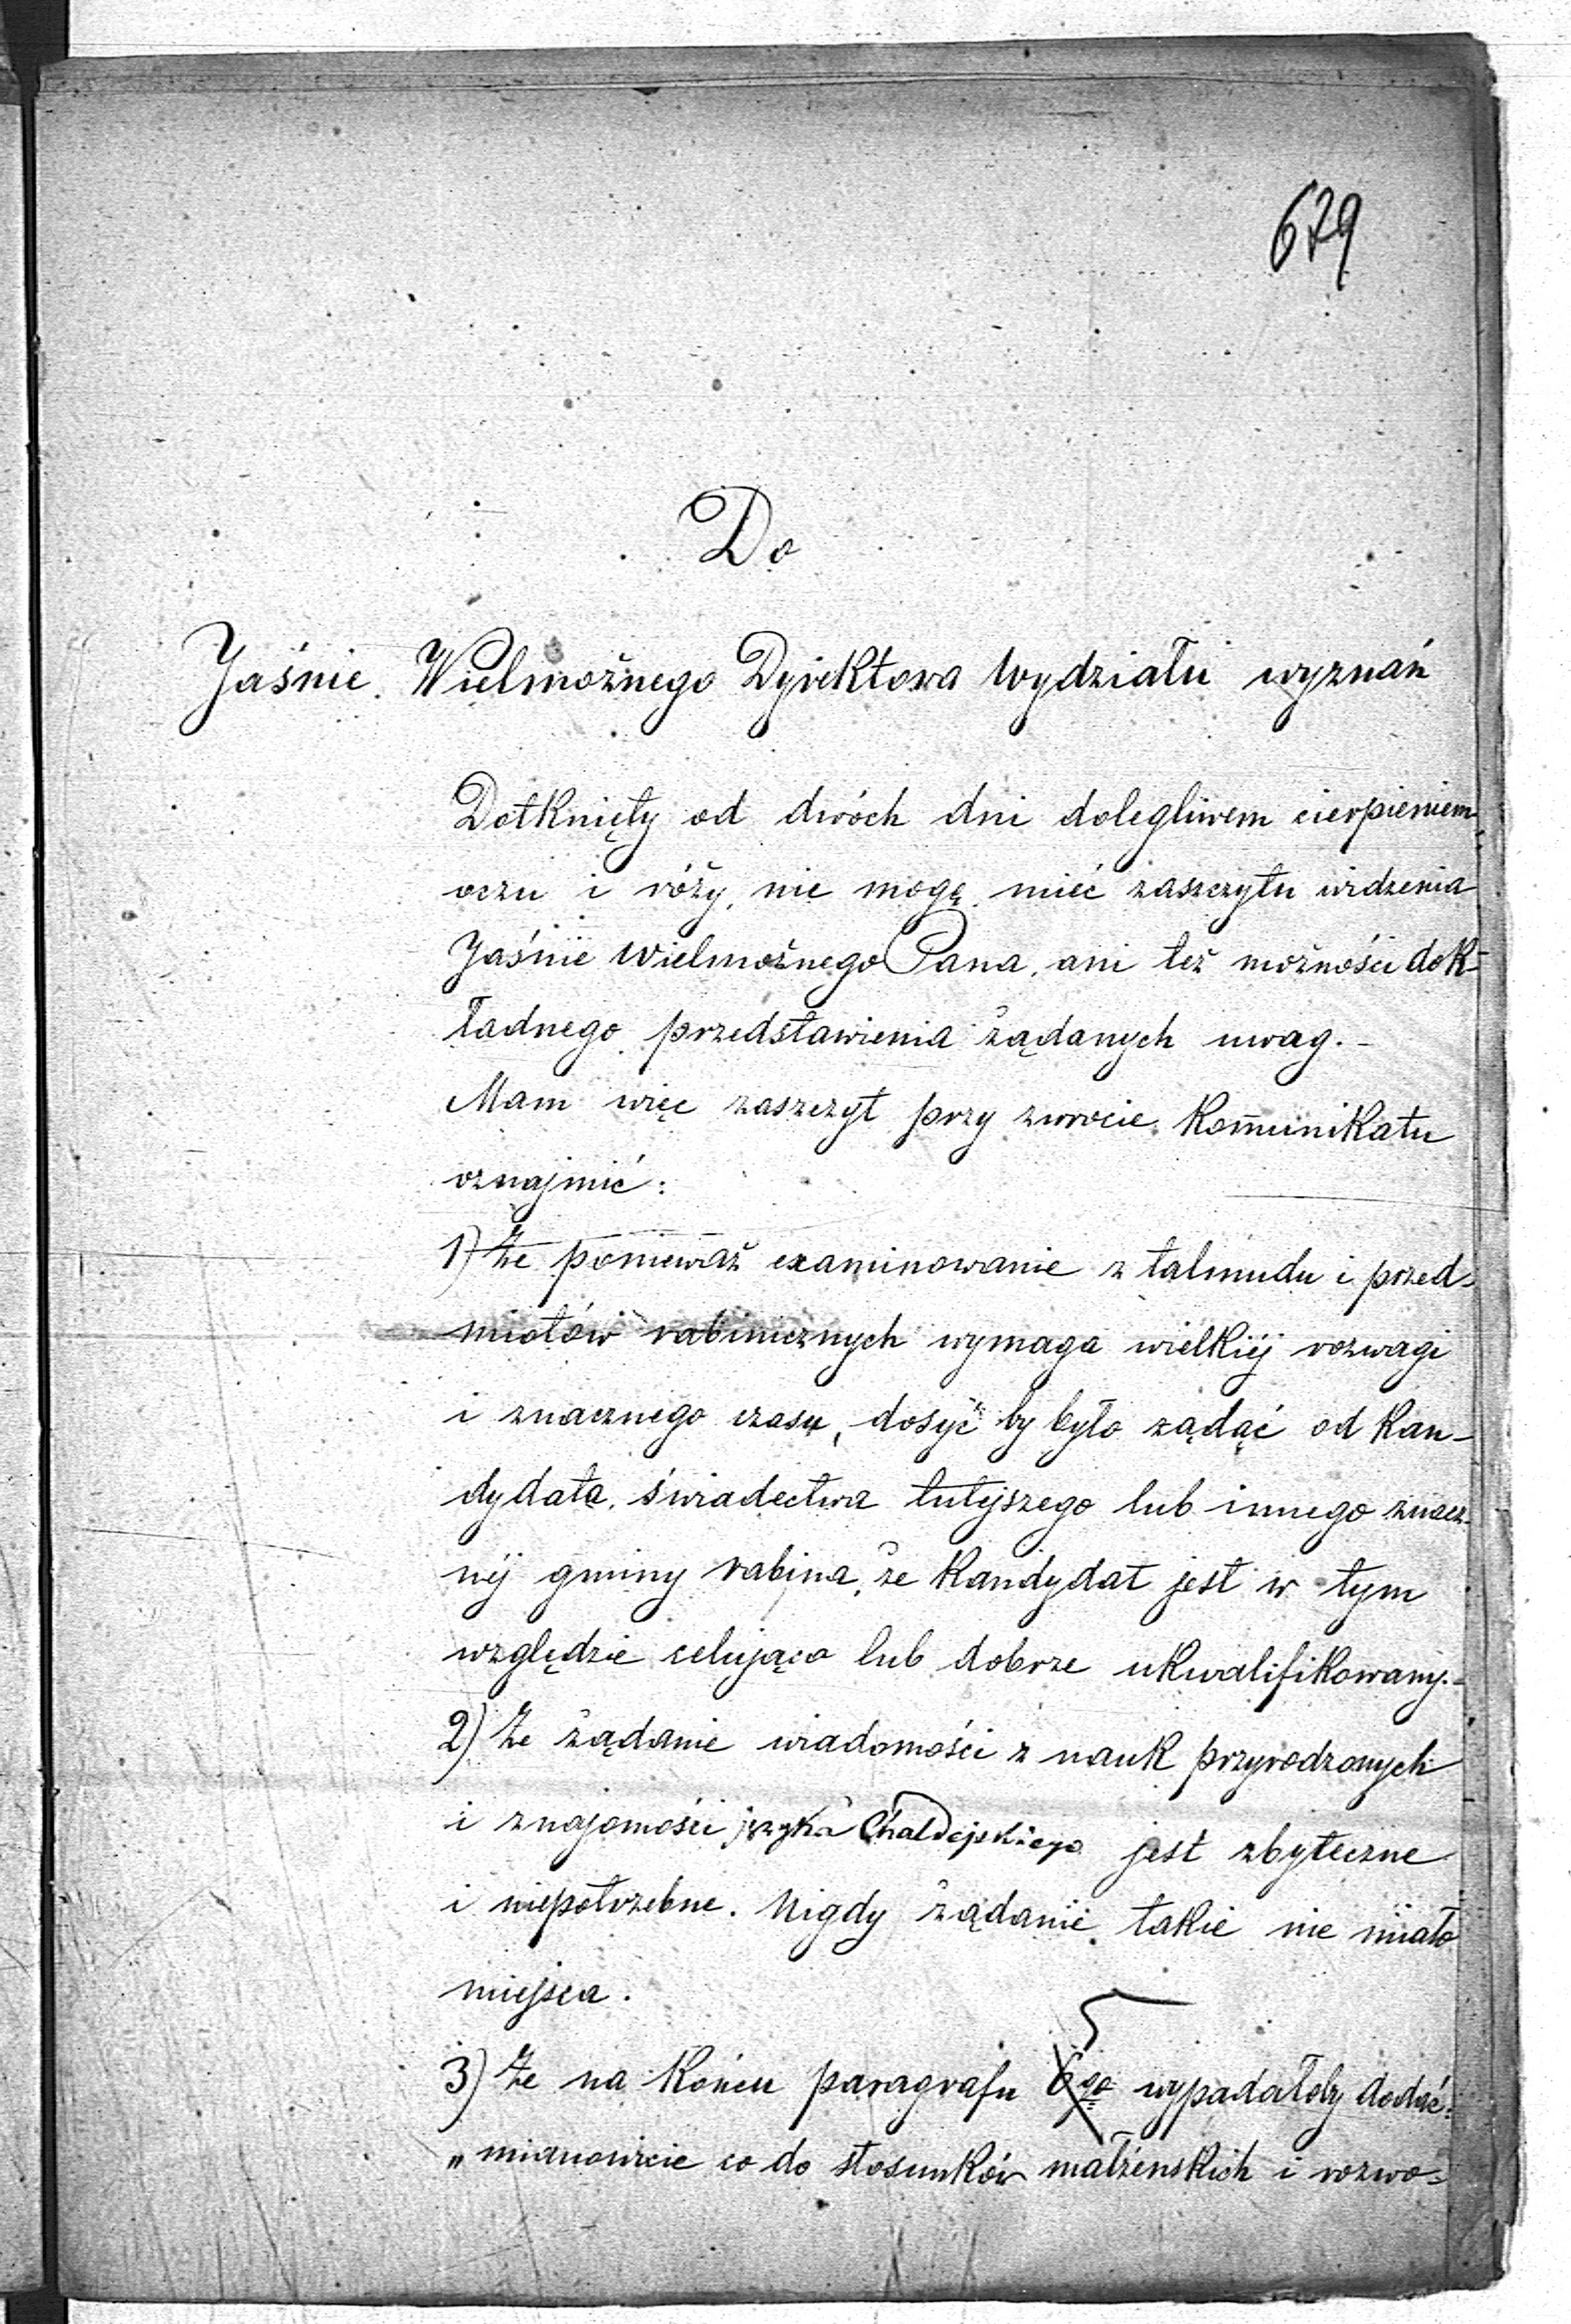 679
Do
Jaśnie Wielmożnego Dyrektora Wydziału wyznań
Dotknięty od dwóch dni dolegliwem cierpieniem
oczu i róży, nie mogę mieć zaszczytu widzenia
Jaśnie Wielmożnego Pana, ani też możności dok-
ładnego przedstawienia żądanych uwag.-
Mam więc zaszczyt przy zwrocie Kom̅unikatu
oznajmić:
1) Że ponieważ examinowanie z talmudu i przed-
miotów rabinicznych wymaga wielkiéj rozwagi
i znacznego czasu, dosyć by było żądać od Kan-
dydata świadectwa tutejszego lub innego znacz-
néj gminy rabina, że Kandydat jest w tym
względzie celująco lub dobrze ukwalifikowany.-
2) Że żądanie wiadomości z nauk przyrodzonych
i znajomości języka Chaldejskiego jest zbyteczne
i niepotrzebne. Nigdy żądanie takie nie miało
miejsca.
5
3) Że na Końcu paragrafu 6go wypadałoby dodać:
„mianowicie co do stosunków małżenskich i rozwo-